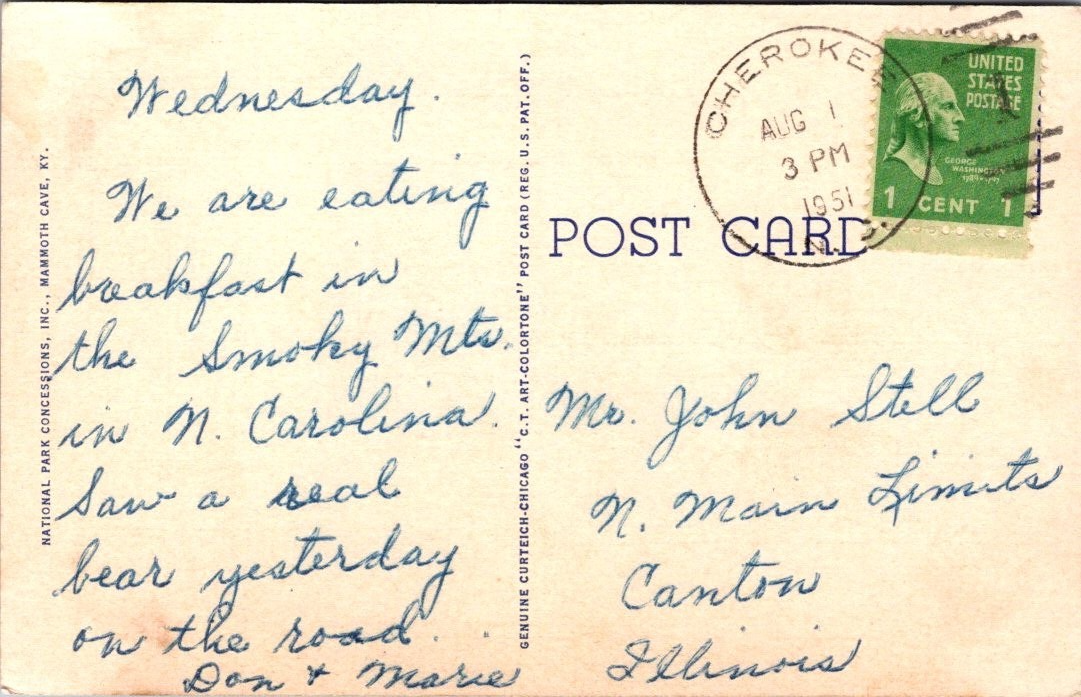 NATIONAL PARK CONCESSIONS, INC., MAMMOTH CAVE, KY.
Wednesday.
We are eating
breakfast in
the Smoky Mts.
in N. Carolina.
Saw a real
bear yesterday
on the road.
Don + Marie
GENUINE CURTEICH-CHICAGO "C.T. ART-COLORTONE" POST CARD (REG. U.S. PAT. OFF.)
POST CARD
CHEROKEE
AUG 1
3 PM
1951
N. C.
UNITED
STATES
POSTAGE
GEORGE
WASHINGTON
1789-1797
1 CENT 1
Mr. John Stell
N. Main Limits
Canton
Illinois